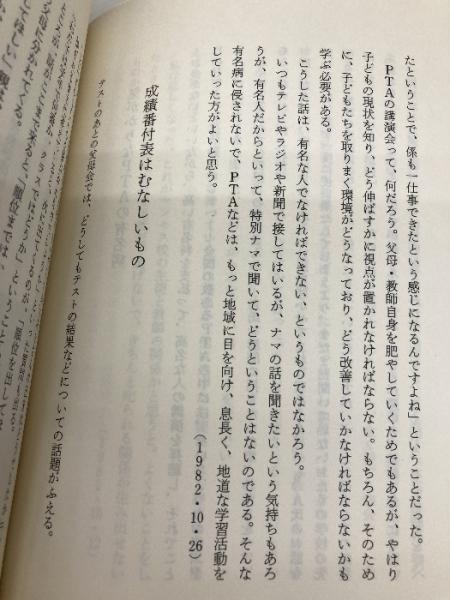 たということで、係も一仕事できたという感じになるんですよね」ということだった。
PTAの講演会って、何だろう。父母・教師自身を肥やしていくためでもあるが、やはり
子どもの現状を知り、どう伸ばすかに視点が置かれなければならない。もちろん、そのため
に、子どもたちを取りまく環境がどうなっており、どう改善していかなければならないかも
学ぶ必要がある。
こうした話は、有名な人でなければできない、というものではなかろう。
いつもテレビやラジオや新聞で接してはいるが、ナマの話を聞きたいという気持ちもあろ
うが、有名人だからといって、特別ナマで聞いて、どうということはないのである。そんな
有名病に侵されないで、PTAなどは、もっと地域に目を向け、息長く、地道な学習活動を
していった方がよいと思う。
(1982・10・26)
成績番付表はむなしいもの
テストのあとの父母会では、どうしてもテストの結果などについての話題がふえる。